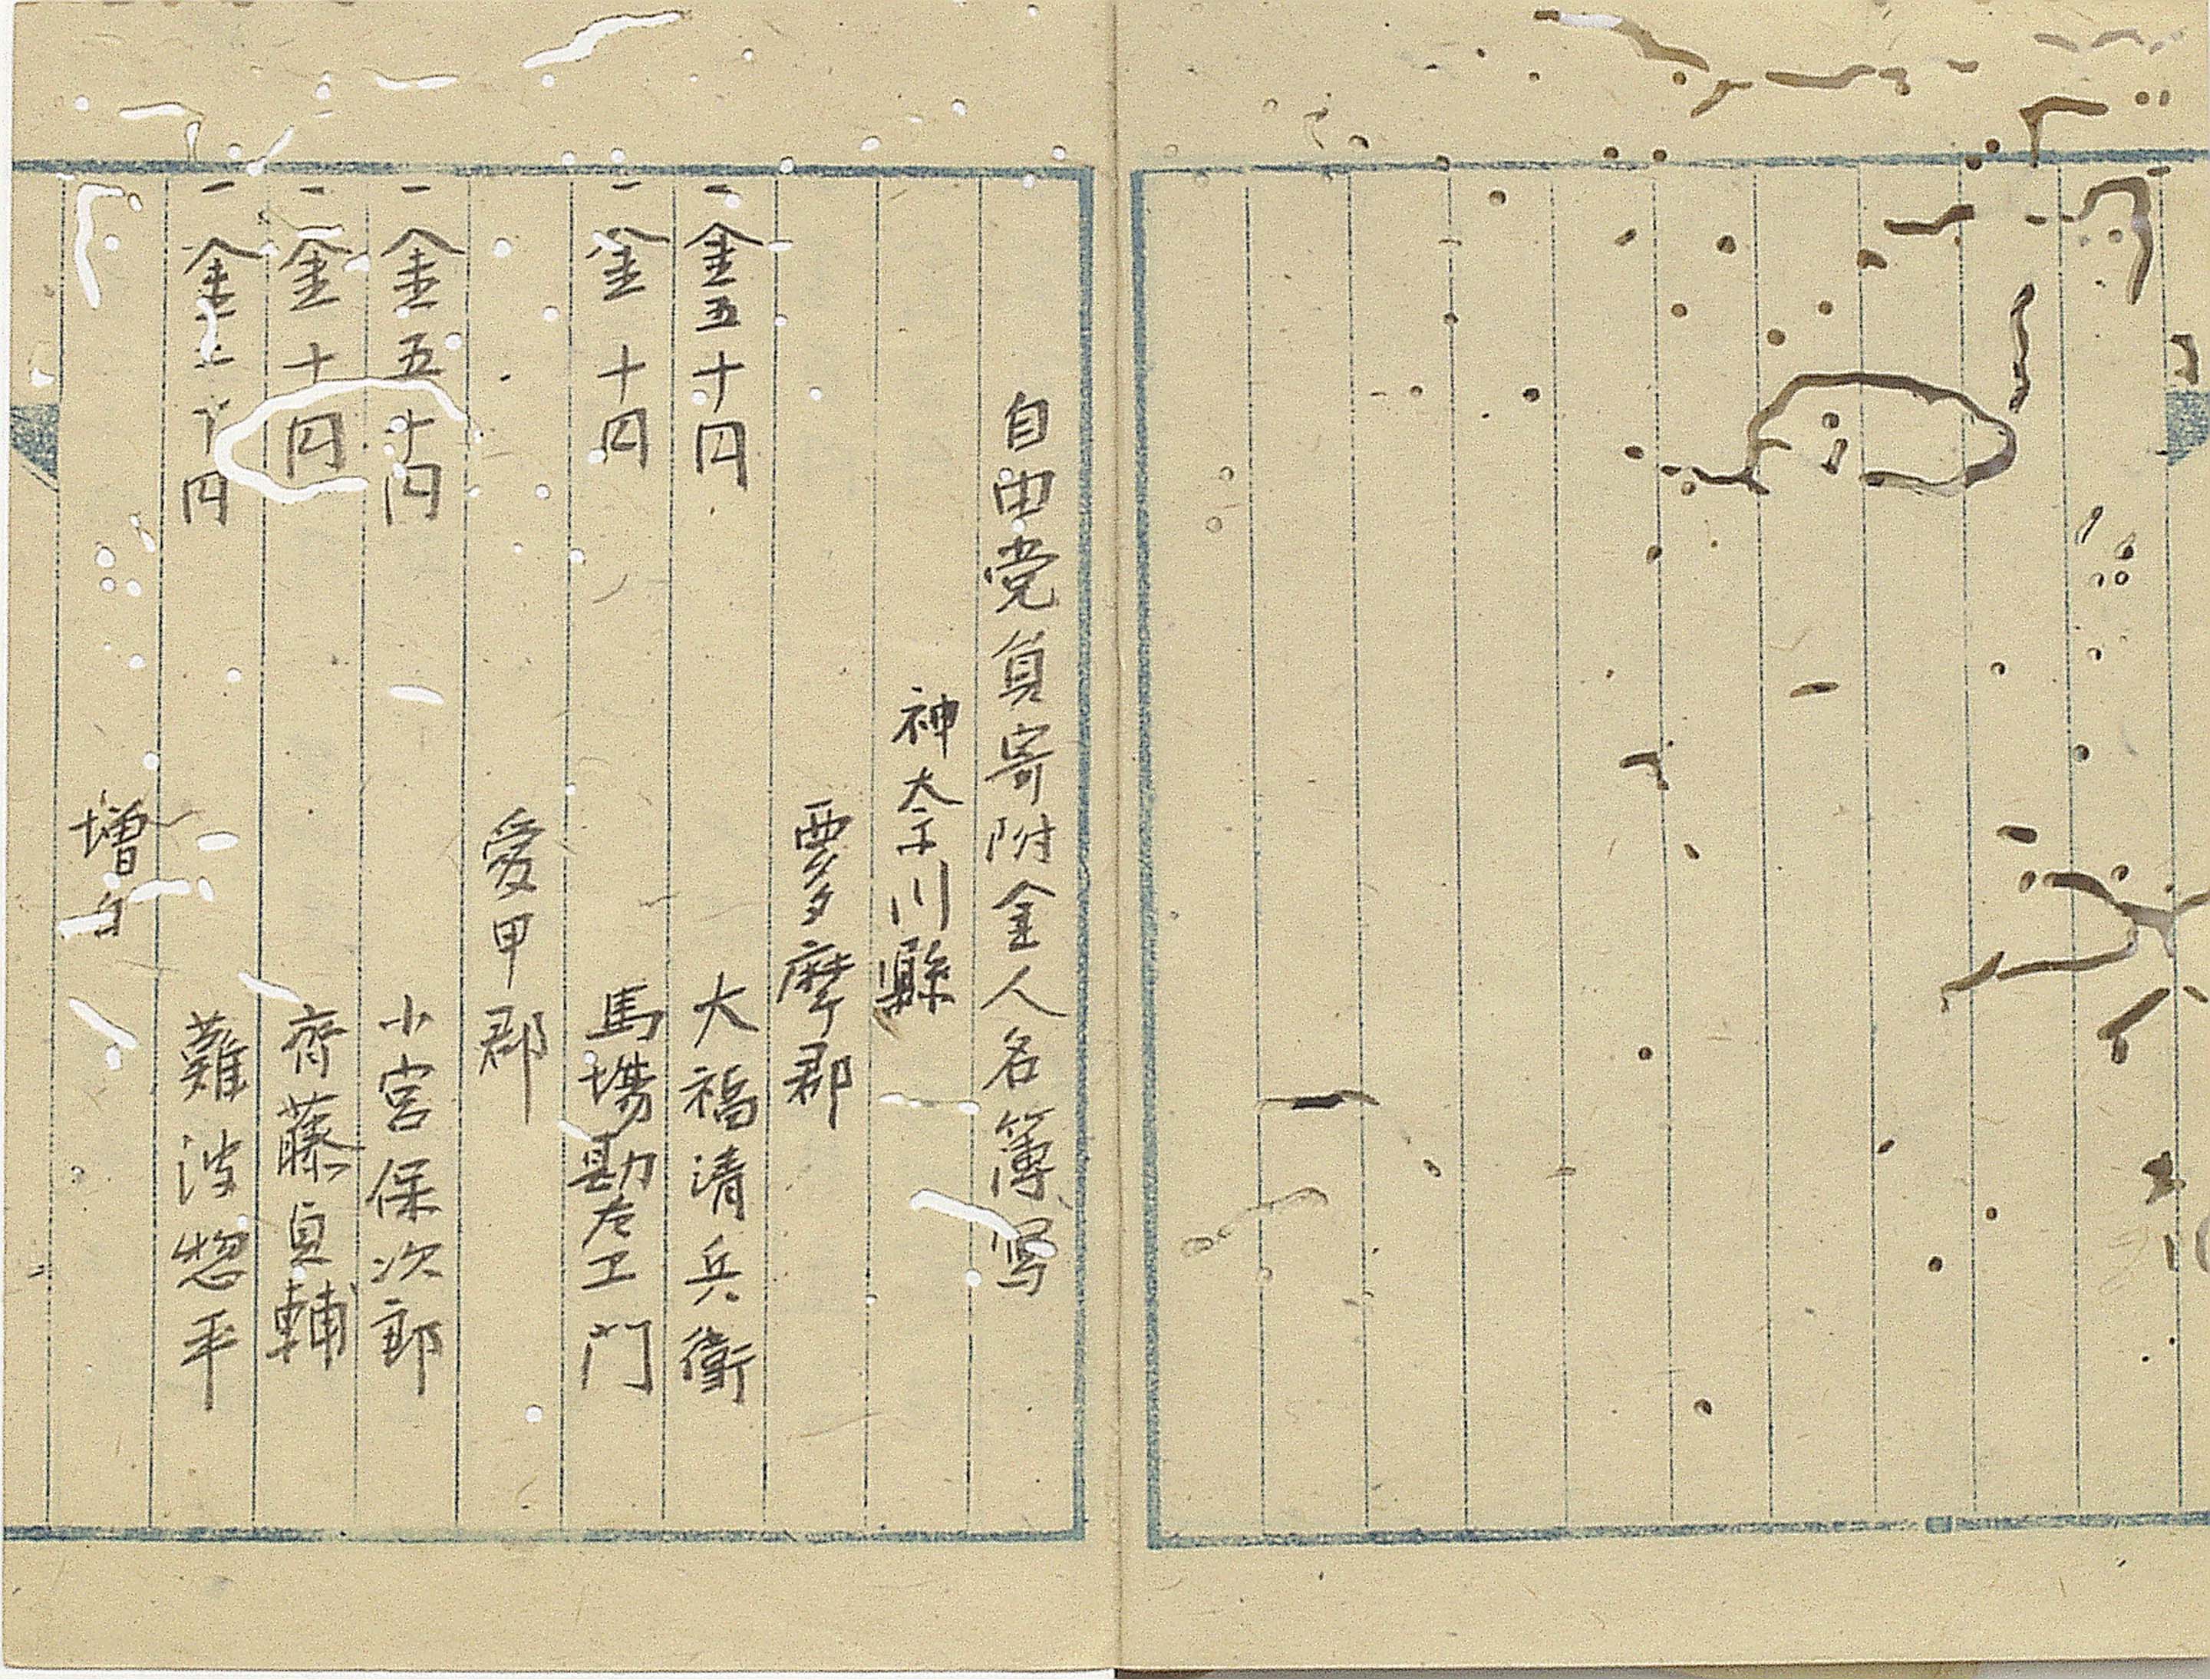 自由党員寄附金人名簿写
神奈川縣
西多摩郡
一金五十円　大福清兵衛
一金十円　馬塲勘左エ門
愛甲郡
一金五十円　小宮保次郎
一金十円　齊藤貞輔
一金十円　難波惣平
増